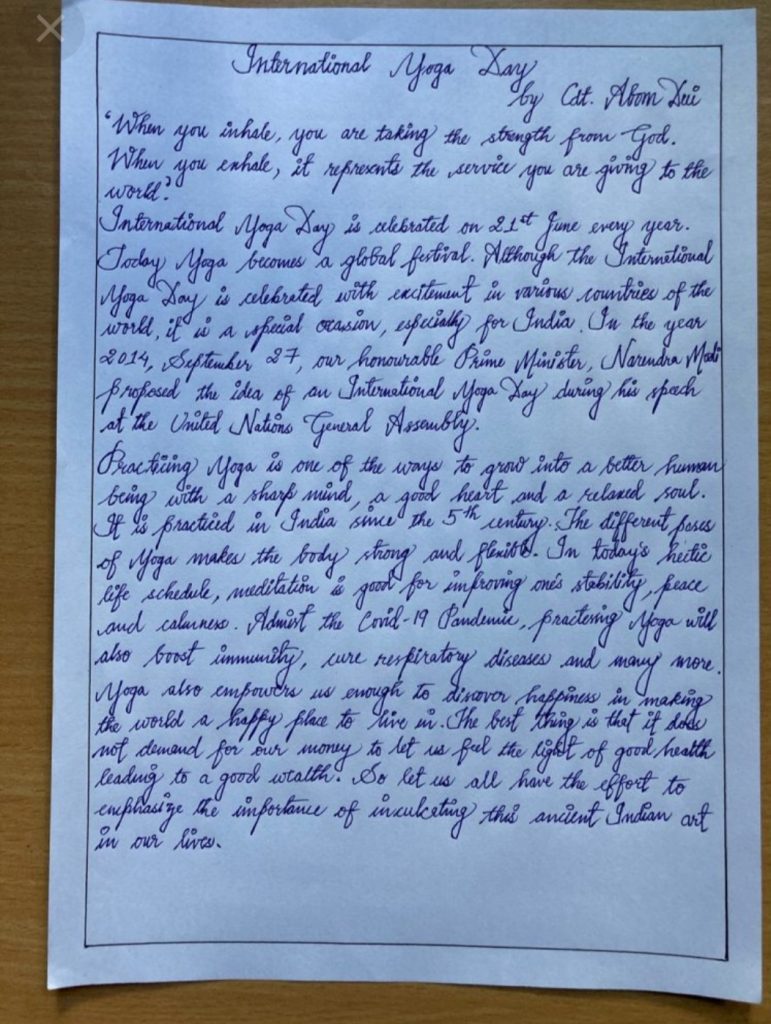 International Yoga Day
by Cdt. Abom Dui
"When you inhale, you are taking the strength from God.
When you exhale, it represents the service you are giving to the
world."
International Yoga Day is celebrated on 21st June every year.
Today Yoga becomes a global festival. Although the International
Yoga Day is celebrated with excitement in various countries of the
world, it is a special occasion, especially for India. In the year
2014, September 27, our honourable Prime Minister, Narendra Modi
proposed the idea of an International Yoga Day during his speech
at the United Nations General Assembly.
Practicing Yoga is one of the ways to grow into a better human
being with a sharp mind, a good heart and a relaxed soul.
It is practiced in India since the 5th century. The different poses
of Yoga makes the body strong and flexible. In today's hectic
life schedule, meditation is good for improving one's stability, peace
and calmness. Admist the Covid-19 Pandemic, practising Yoga will
also boost immunity, cure respiratory diseases and many more.
Yoga also empowers us enough to discover happiness in making
the world a happy place to live in. The best thing is that it does
not demand for our money to let us feel the light of good health
leading to a good wealth. So let us all have the effort to
emphasize the importance of inculcating this ancient Indian art
in our lives.